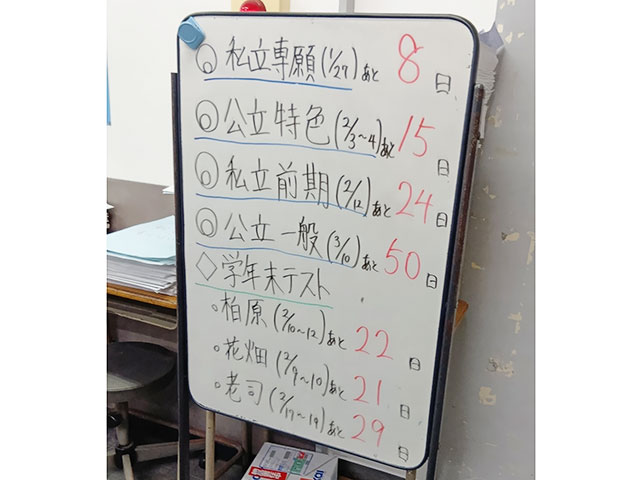 ◎私立専願(1/27)あと8日
◎公立特色(2/3~4)あと15日
◎私立前期(2/12)あと24日
◎公立一般(3/10)あと50日
◇学年末テスト
。柏原(2/10~12)あと22日
。花畑(2/9~10)あと21日
。老司(2/17~19)あと29日